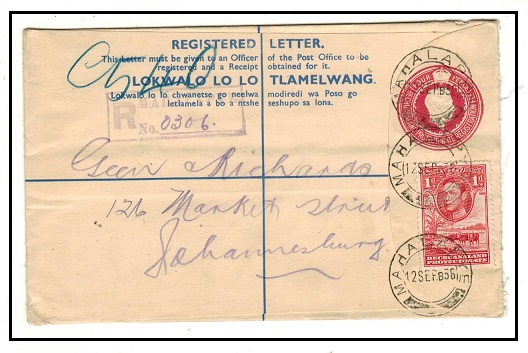 REGISTERED LETTER,
This Letter must be given to an Officer of the Post Office to be
registered and a Receipt obtained for it.
LOKWALO LO LO TLAMELWANG.
Lokwalo lo lo chwanetse go neelwa modiredi wa Poso go
letlamela a bo a ntshe seshupo sa lona.
R
No. 0306.
MAHALA
12 SEP
12 SEP B36
1D 1D
BECHUANALAND
PROTECTORATE
Richards
126 Market Street
Johannesburg